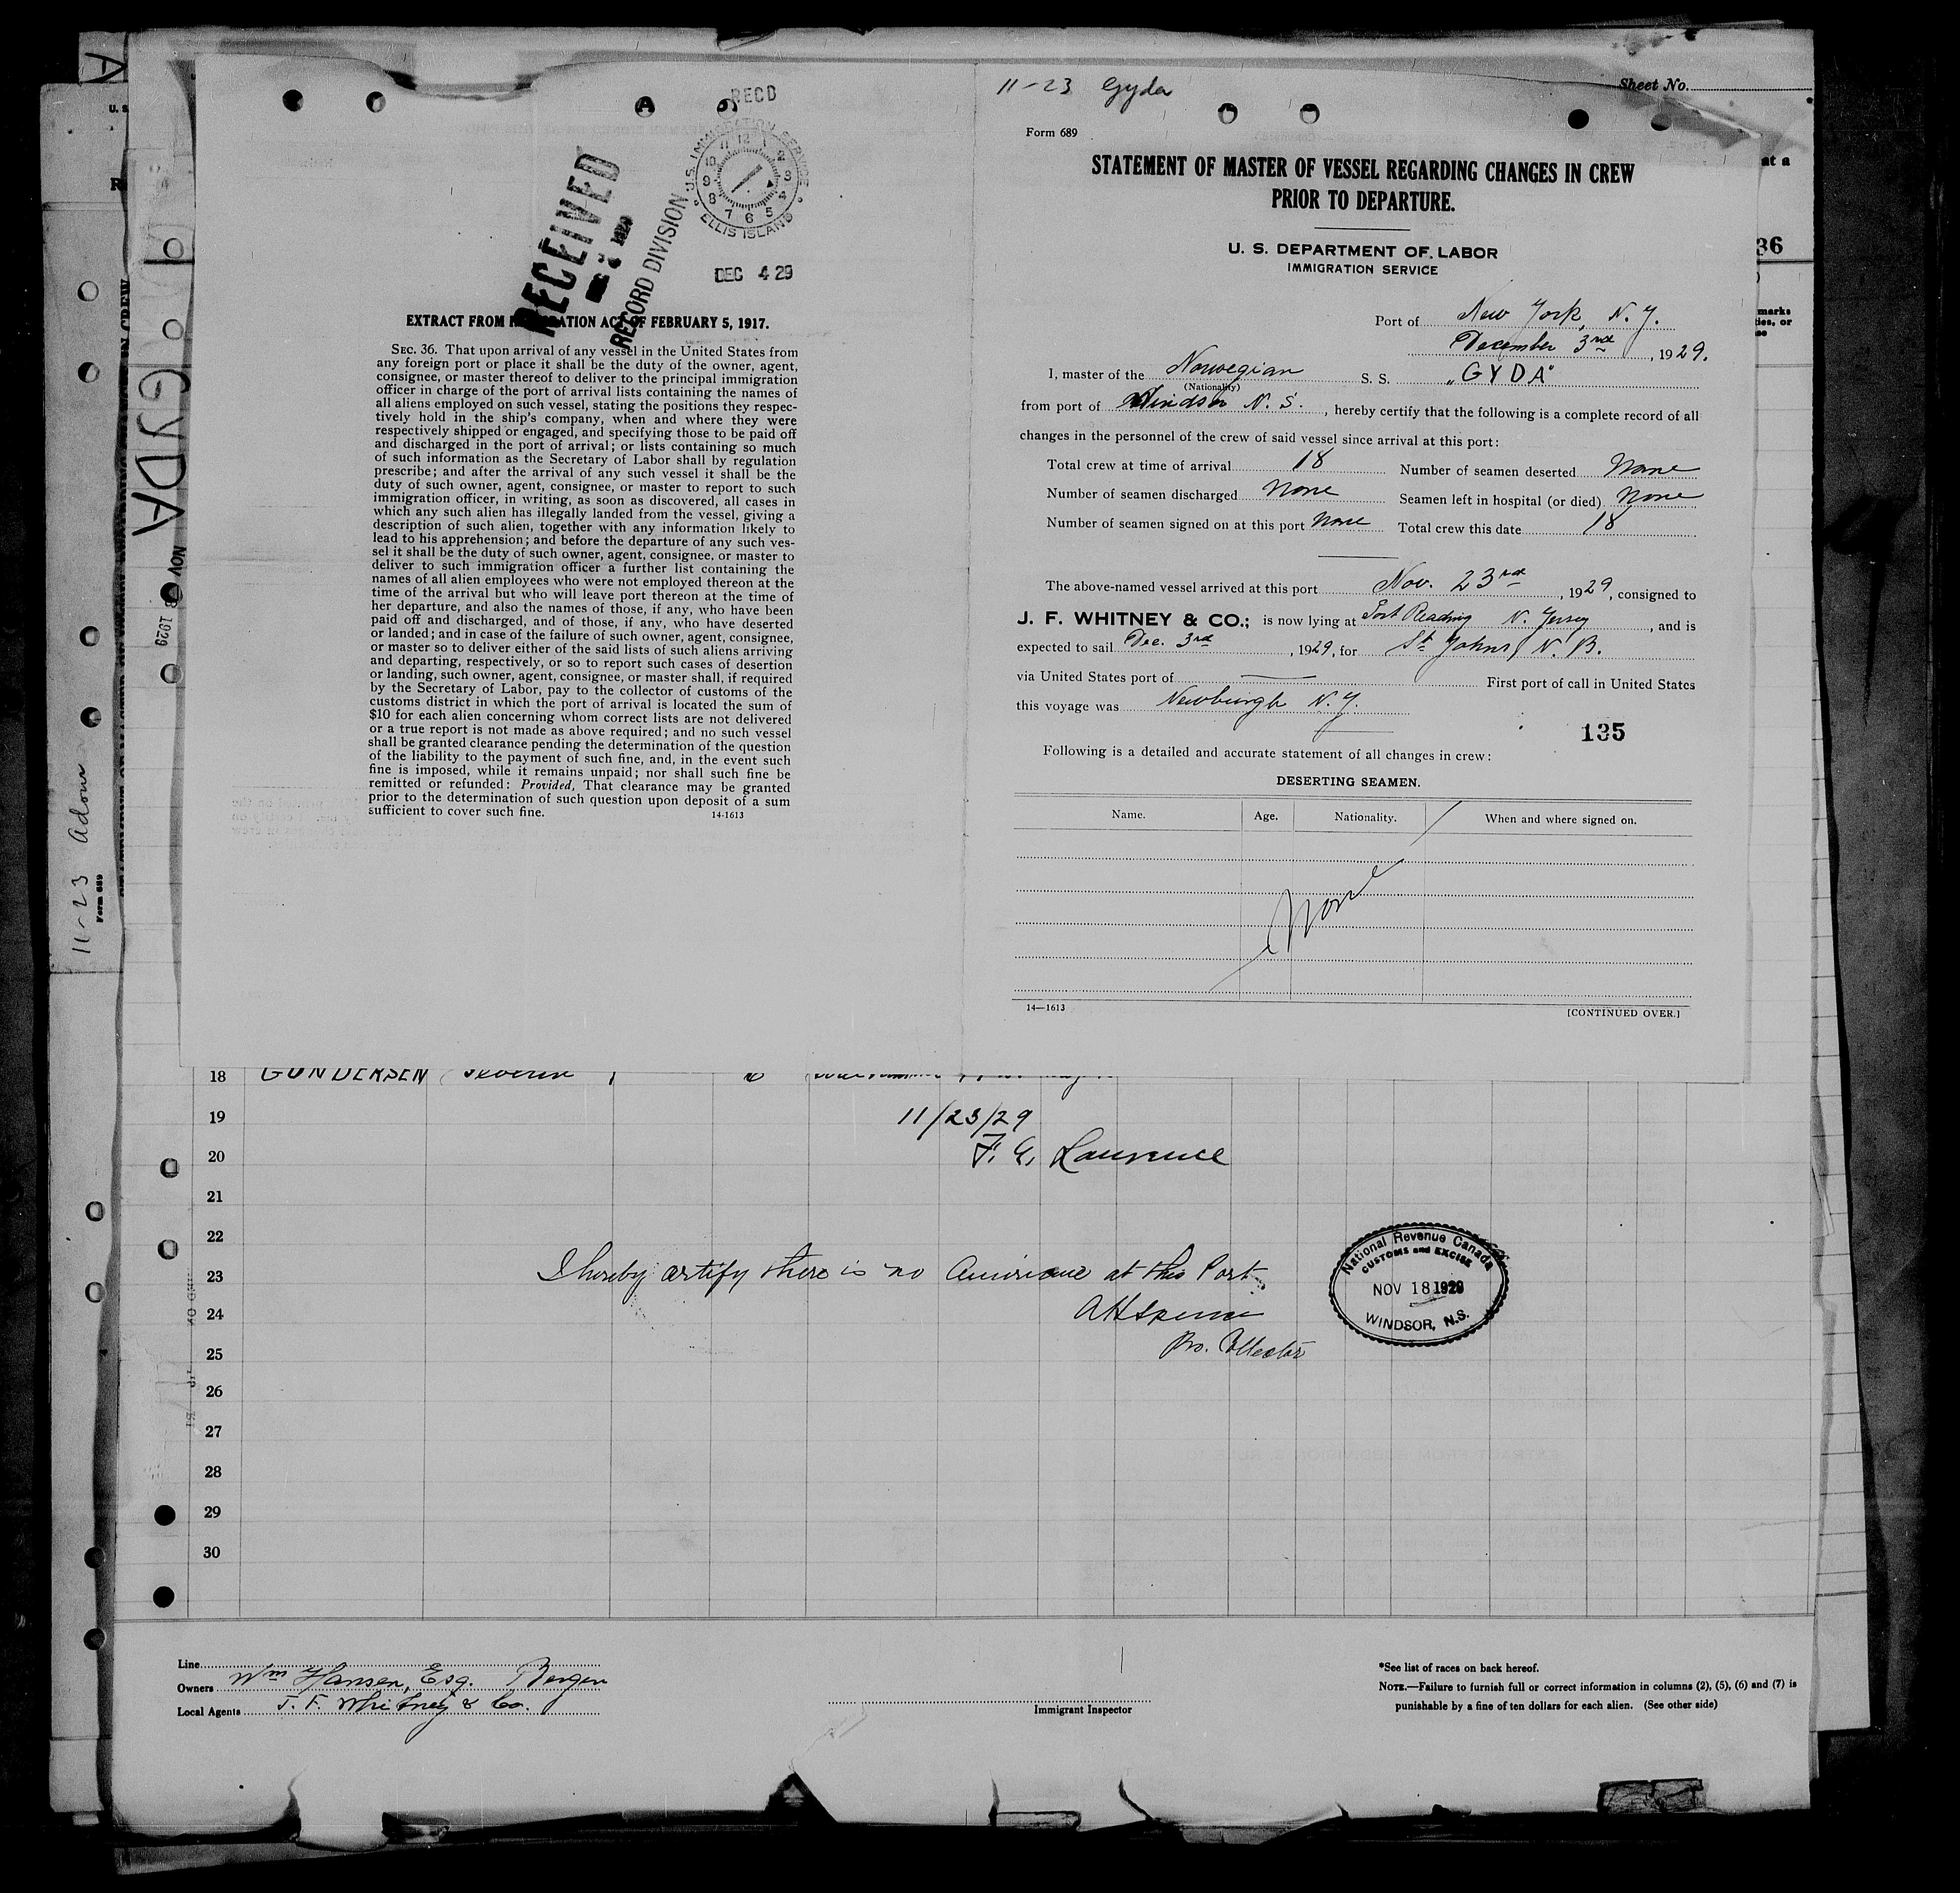 11-23 Gyda
Sheet No.
Form 689
STATEMENT OF MASTER OF VESSEL REGARDING CHANGES IN CREW
PRIOR TO DEPARTURE.
U. S. DEPARTMENT OF LABOR
IMMIGRATION SERVICE
Port of New York, N. Y.
December 3rd, 1929.
I, master of the Norwegian S. S. "GYDA"
(Nationality)
from port of Windsor N. S., hereby certify that the following is a complete record of all
changes in the personnel of the crew of said vessel since arrival at this port:
Total crew at time of arrival 18 Number of seamen deserted None
Number of seamen discharged None Seamen left in hospital (or died) None
Number of seamen signed on at this port None Total crew this date 18
The above-named vessel arrived at this port Nov. 23rd, 1929, consigned to
J. F. WHITNEY & CO.; is now lying at Port Reading N. Jersey, and is
expected to sail Dec. 3rd, 1929, for St Johns, N. B.
via United States port of — First port of call in United States
this voyage was Newburgh N. Y.
135
Following is a detailed and accurate statement of all changes in crew:
DESERTING SEAMEN.
Name. Age. Nationality. When and where signed on.
None
14—1613 [CONTINUED OVER.]
RECD
U.S. IMMIGRATION SERVICE
ELLIS ISLAND
12 1 2 3 4 5 6 7 8 9 10 11
DEC 4 29
RECEIVED
RECORD DIVISION
EXTRACT FROM IMMIGRATION ACT OF FEBRUARY 5, 1917.
SEC. 36. That upon arrival of any vessel in the United States from
any foreign port or place it shall be the duty of the owner, agent,
consignee, or master thereof to deliver to the principal immigration
officer in charge of the port of arrival lists containing the names of
all aliens employed on such vessel, stating the positions they respec-
tively hold in the ship's company, when and where they were
respectively shipped or engaged, and specifying those to be paid off
and discharged in the port of arrival; or lists containing so much
of such information as the Secretary of Labor shall by regulation
prescribe; and after the arrival of any such vessel it shall be the
duty of such owner, agent, consignee, or master to report to such
immigration officer, in writing, as soon as discovered, all cases in
which any such alien has illegally landed from the vessel, giving a
description of such alien, together with any information likely to
lead to his apprehension; and before the departure of any such ves-
sel it shall be the duty of such owner, agent, consignee, or master to
deliver to such immigration officer a further list containing the
names of all alien employees who were not employed thereon at the
time of the arrival but who will leave port thereon at the time of
her departure, and also the names of those, if any, who have been
paid off and discharged, and of those, if any, who have deserted
or landed; and in case of the failure of such owner, agent, consignee,
or master so to deliver either of the said lists of such aliens arriving
and departing, respectively, or so to report such cases of desertion
or landing, such owner, agent, consignee, or master shall, if required
by the Secretary of Labor, pay to the collector of customs of the
customs district in which the port of arrival is located the sum of
$10 for each alien concerning whom correct lists are not delivered
or a true report is not made as above required; and no such vessel
shall be granted clearance pending the determination of the question
of the liability to the payment of such fine, and, in the event such
fine is imposed, while it remains unpaid; nor shall such fine be
remitted or refunded: Provided, That clearance may be granted
prior to the determination of such question upon deposit of a sum
sufficient to cover such fine. 14-1613
GYDA
11-23
Form 689
18 GUNDERSEN
19 11/23/29
20 F. E. Laurence
21
22
23 I hereby certify there is no American at this Port
24
25 Pro. Collector
26
27
28
29
30
National Revenue Canada
CUSTOMS and EXCISE
NOV 18 1929
WINDSOR, N.S.
Line
Owners Wm Hansen, Esq. Bergen
Local Agents J. F. Whitney & Co.
Immigrant Inspector
*See list of races on back hereof.
NOTE.—Failure to furnish full or correct information in columns (2), (5), (6) and (7) is
punishable by a fine of ten dollars for each alien. (See other side)